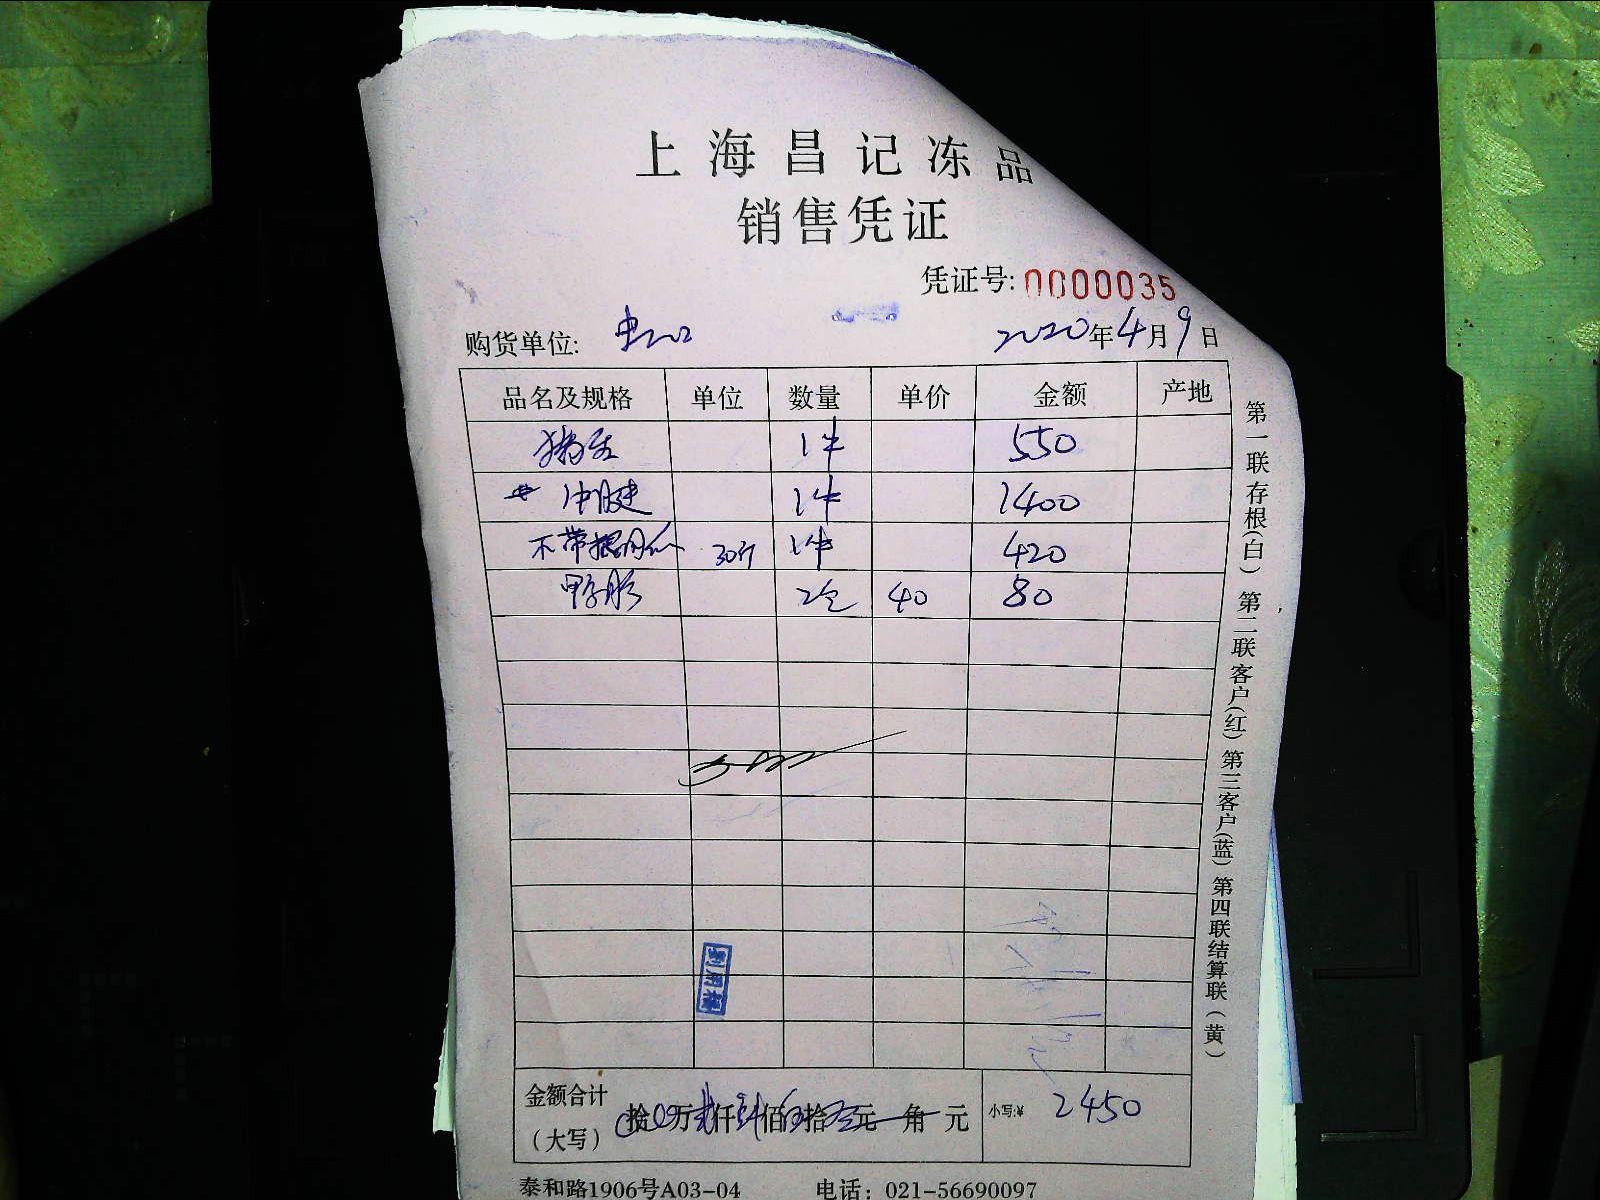 上海昌记冻品
销售凭证
凭证号: 0000035
购货单位: 虹口 2020年4月9日
品名及规格 单位 数量 单价 金额 产地
1件 550
牛腱 1件 1400
不带 30斤 1件 420
鸭肫 2包 40 80
金额合计 (大写) 拾 万贰仟肆佰伍拾 元 角 元 小写:¥ 2450
泰和路1906号A03-04 电话: 021-56690097
第一联存根(白) 第二联客户(红) 第三客户(蓝) 第四联结算联(黄)